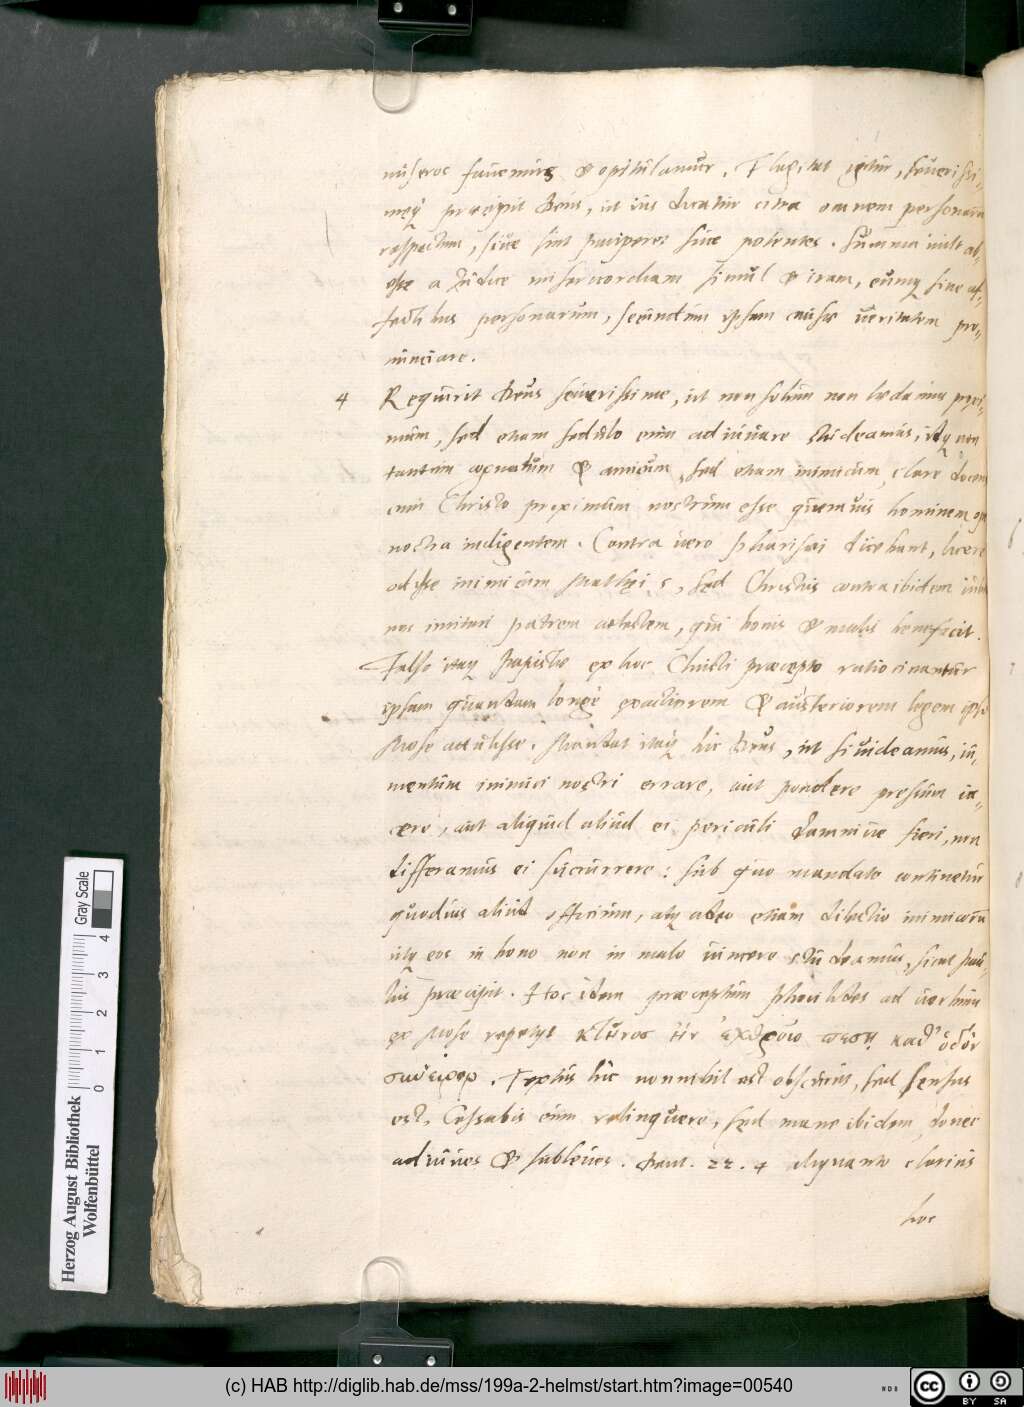 miseros fauemus & opitulamur. Flagitat igitur, seuerissi-
meq₃ præcipit Deus, ut ius dicatur citra omnem personarum
respectum, siue sint pauperes siue potentes. Summa uult ab-
esse a Iudice misericordiam simul & iram, eumq₃ sine af-
fectibus personarum, secundum ipsam causæ ueritatem pro-
nunciare.
4 Requirit Deus seuerissime, ut non solum non lædamus proxi-
mum, sed etiam sedulo eum adiuuare studeamus, idq₃ non
tantum cognatum & amicum, sed etiam inimicum, clare docem
cum Christo proximum nostrum esse quemuis hominem ope
nostra indigentem. Contra uero pharisæi dicebant, licere
odisse inimicum Matthęi 5, sed Christus contra ibidem iubet
nos imitari patrem cælestem, qui bonis & malis benefacit.
Falso itaq₃ Papistæ ex hoc Christi præcepto ratiocinantur
ipsum quandam longè exactiorem & austeriorem legem ipso
Mose attulisse. Mandat itaq₃ hic Deus, ut si uideamus, iu-
mentum inimici nostri errare, aut pondere pressum ia-
cere, aut aliquid aliud ei periculi damniue fieri, non
differamus ei succurrere: sub quo mandato continetur
quoduis aliud officium, atq₃ adeo etiam dilectio inimicorum
utq₃ eos in bono non in malo uincere studeamus, sicut Pau-
lus præcipit. Hoc idem præceptum Phocilides ad uerbum
ex Mose repetijt κτῆνος ἢν ἐχθροῖο πεσῃ καθ' ὁδὸν
συνέγειρε. Textus hic nonnihil est obscurus, sed sensus
est, Cessabis eum relinquere, sed mane ibidem donec
adiuues & subleues. Deut. 22. 4 aliquanto clarius
hoc
Herzog August Bibliothek
Wolfenbüttel
Gray Scale
0 1 2 3 4
(c) HAB http://diglib.hab.de/mss/199a-2-helmst/start.htm?image=00540
cc BY SA